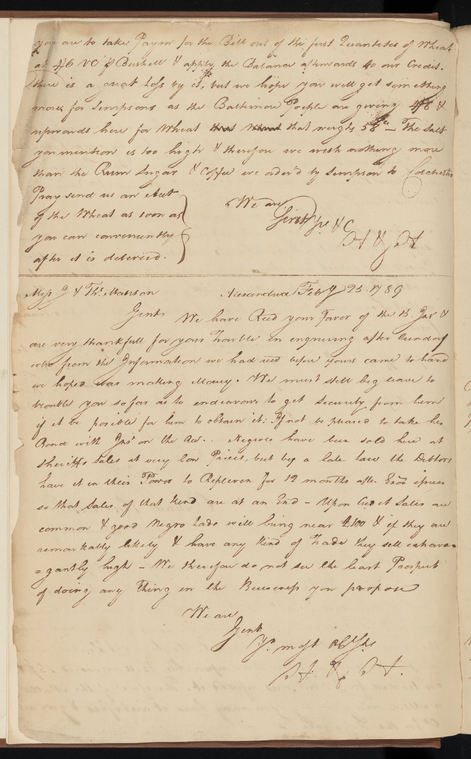 you are to take Paym for the Bill out of the first Quantetes of Wheat
at 4/6 VC p Bushell & apply the Balance afterwards to our Credit.
there is a great loss by it, but we hope you will get something
more for Simpsons as the Baltimore People are giving &
upwards here for Wheat that weighs 58 — The Salt
you mention is too high & therefore we wish nothing more
than the Rum Sugar & Coffee we order'd by Simpson to Colchester
Pray send us an Acct
of the Wheat as soon as
you can conveniently
after it is delivered.
We are
Gent Yrs &C
H & H
Mess & Ths Matteson Alexandria Feb 25 1789
Gents We have Recd your Favor of the 13 &
are very thankfull for your Trouble in enquiring after
who from the Information we had before yours came to hand
we hoped was making Money. We must still beg leave to
trouble you so far as to endeavour to get Security from him
if it be posible for him to obtain it. If not be pleased to take his
Bond with Int on the Acc. Negroes have been sold here at
Sheriffs Sales at very low Prices, but by a late law the Debtors
have it in their Power to Replevin for 12 months after
so that Sales of that Kind are at an End — Upon Cred Sales are
common & good Negro Lads will bring near £100 & if they are
remarkably likely & have any Kind of Trade they sell extrava-
-gantly high — We therefore do not see the least Prospect
of doing any Thing in the Business you propose
We are
Gents
Yr most Obt
H & H.